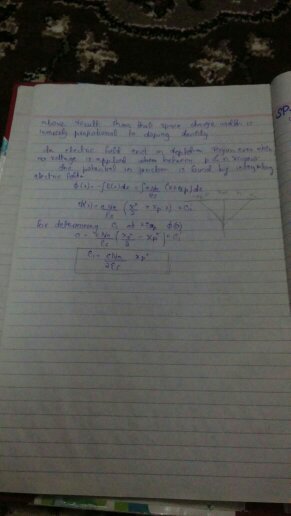 above result than that space charge width is
inversely proportional to doping density
An electric field exist in depletion Region even while
no voltage is applied when between p & n region
the potential in junction is found by integrating
electric field.
φ(x) = -∫E(x)dx = ∫ eNa/εs (x+xp)dx
φ(x) = eNa/εs (x²/2 + xp x) + C₁
For determining C₁ at x = -xp φ(x)
0 = eNa/εs (xp²/2 - xp²) + C₁
C₁ = eNa/2εs xp²
SP